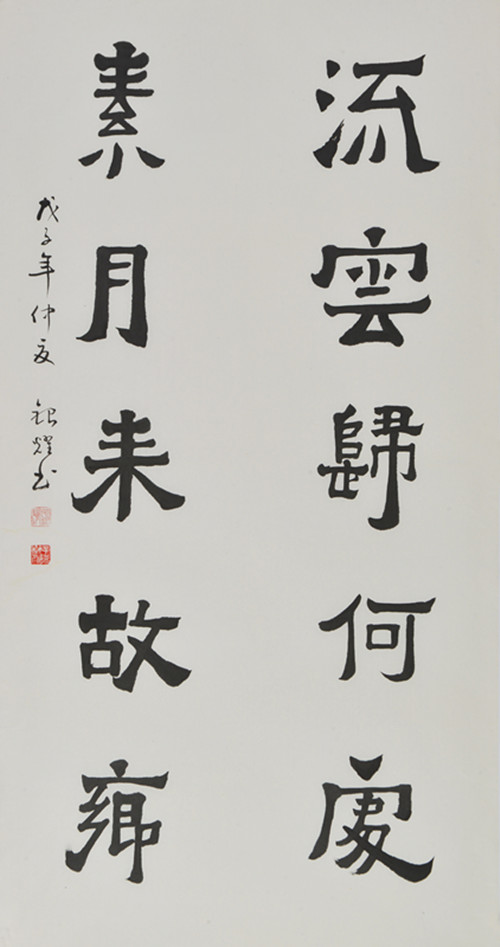 流雲歸何處
素月来故鄉
戊子年仲夏 銀燿书